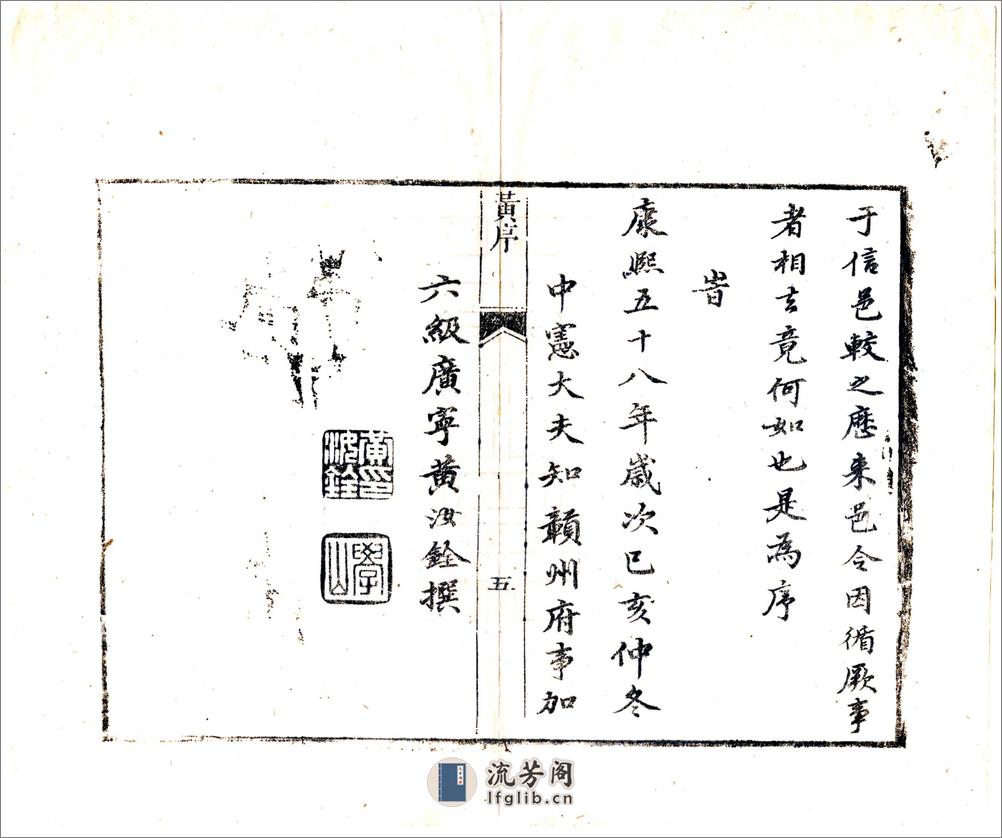 于信邑較之歷来邑令因循厥事
者相去竟何如也是為序
旹
康熙五十八年歲次已亥仲冬
中憲大夫知贛州府事加
黃序
五
六級廣寧黄汝銓撰
黃印汝銓
學山
流芳阁
lfglib.cn